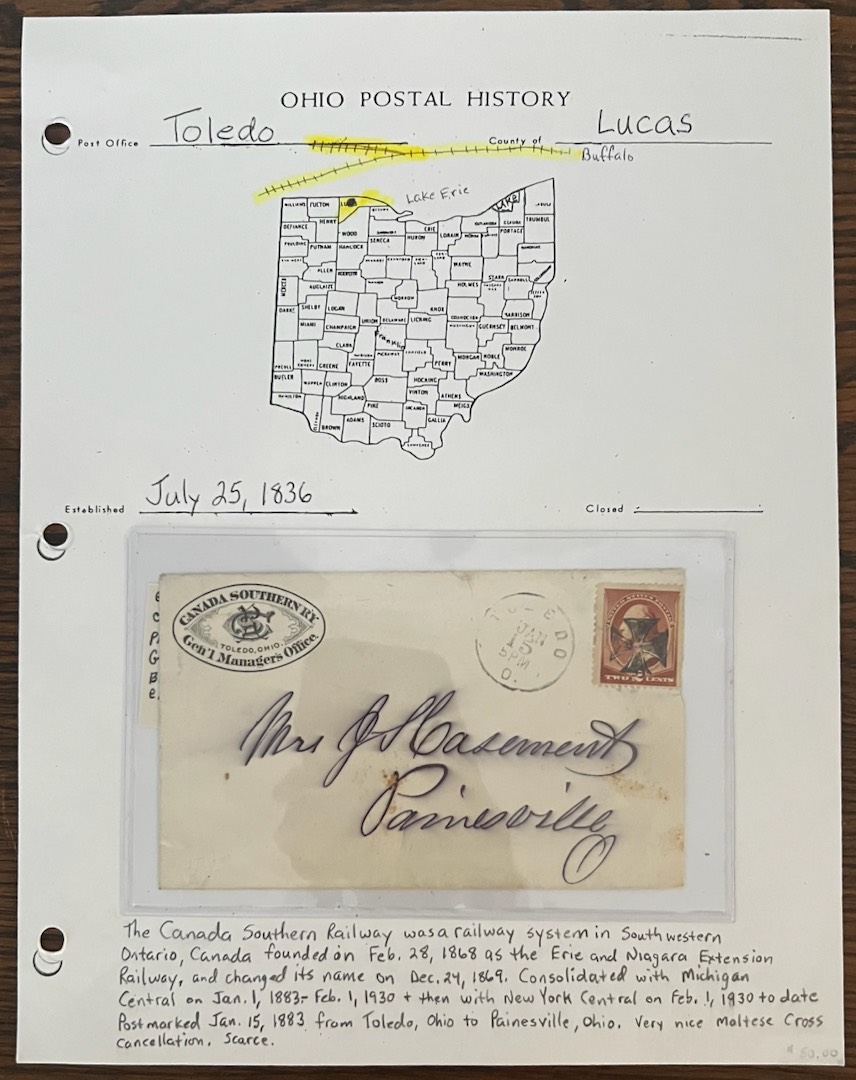 OHIO POSTAL HISTORY
Post Office Toledo County of Lucas
Buffalo
Lake Erie
Lake
WILLIAMS FULTON LUCAS
DEFIANCE HENRY WOOD
ERIE LORAIN PORTAGE TRUMBUL
PAULDING PUTNAM HANCOCK SENECA HURON
ALLEN WAYNE STARK
MERCER AUGLAIZE HOLMES
DARKE SHELBY LOGAN MORROW KNOX HARRISON
MIAMI CHAMPAIGN UNION DELAWARE LICKING GUERNSEY BELMONT
CLARK Franklin MONROE
GREENE FAYETTE PERRY MORGAN NOBLE
BUTLER WARREN CLINTON ROSS HOCKING WASHINGTON
HAMILTON HIGHLAND VINTON ATHENS
PIKE MEIGS
BROWN ADAMS SCIOTO GALLIA
Established July 25, 1836 Closed
CANADA SOUTHERN RY.
TOLEDO, OHIO.
Gen'l Managers Office.
TOLEDO
JAN
15
5PM
O.
TWO CENTS
Mrs J S Casement
Painesville
O
The Canada Southern Railway was a railway system in Southwestern
Ontario, Canada founded on Feb. 28, 1868 as the Erie and Niagara Extension
Railway, and changed its name on Dec. 24, 1869. Consolidated with Michigan
Central on Jan. 1, 1883- Feb. 1, 1930 + then with New York Central on Feb. 1, 1930 to date
Postmarked Jan. 15, 1883 from Toledo, Ohio to Painesville, Ohio. Very nice Maltese Cross
Cancellation. Scarce.
$ 50.00